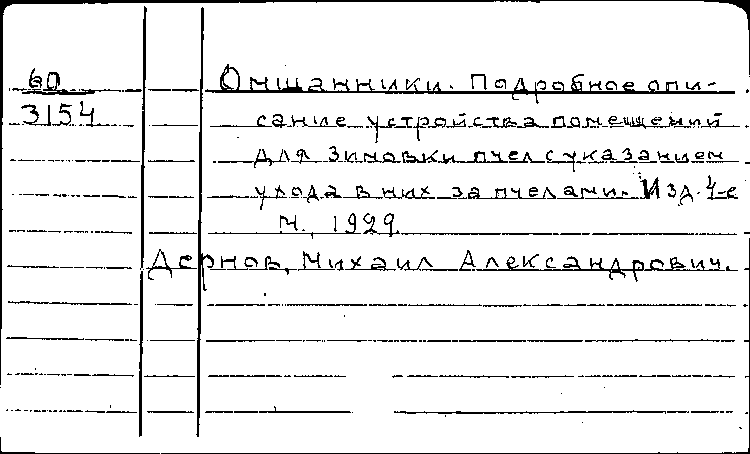 60
3154
Омшанники. Подробное опи-
сание устройства помещений
для зимовки пчел с указанием
ухода в них за пчелами. Изд. 4-е
М., 1929.
Дернов, Михаил Александрович.